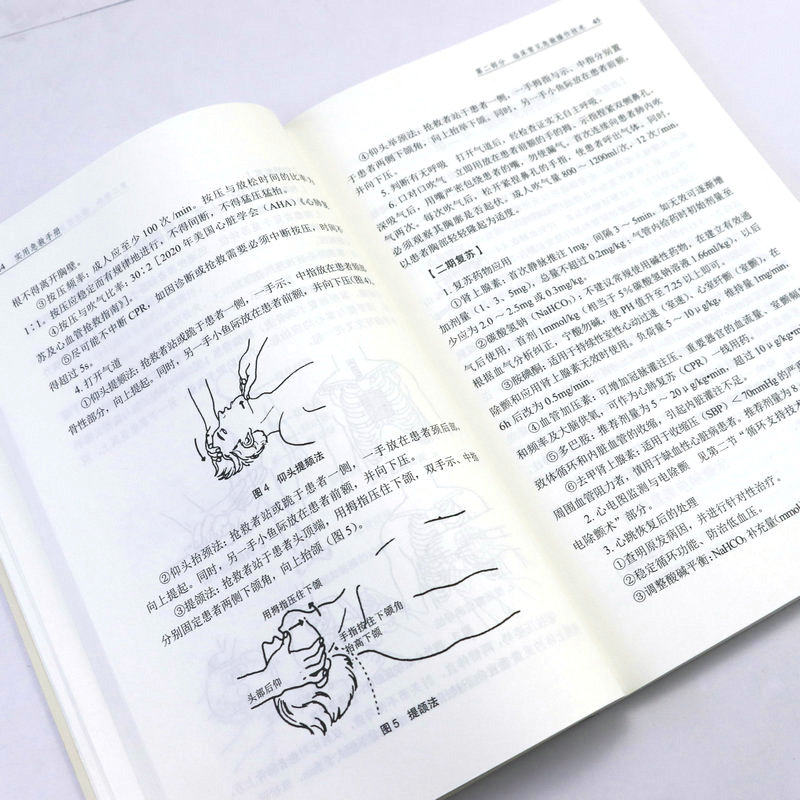 4 实用急救手册
根不得离开胸壁。
③按压频率：成人应至少 100 次/min。按压与放松时间的比率为
1：1。按压应稳定而有规律地进行，不得间断，不得猛压猛抬。
④按压与吹气比率：30：2［2020 年美国心脏学会（AHA）《心肺复
苏及心血管抢救指南》］。
⑤尽可能不中断CPR，如因诊断或抢救需要必须中断按压，时间不
得超过 5s。
4. 打开气道
①仰头提颏法：抢救者站或跪于患者一侧，一手示、中指放在患者颏部
骨性部分，向上提起。同时，另一手小鱼际放在患者前额，并向下压(图4)。
图 4 仰头提颏法
②仰头抬颈法：抢救者站或跪于患者一侧，一手放在患者颈后部，
向上提起。同时，另一手小鱼际放在患者前额，并向下压。
③提颌法：抢救者站于患者头顶端，用拇指压住下颌，双手示、中指
分别固定患者两侧下颌角，向上抬颌（图 5）。
用拇指压住下颌
手指按住下颌角
抬高下颌
头部后仰
图 5 提颌法
第二部分 临床常见急救操作技术 45
④仰头举颏法：抢救者站于患者一侧，一手拇指与示、中指分别置
于患者两侧下颌角，向上抬举下颌。同时，另一手小鱼际放在患者前额，
并向下压。
5. 判断有无呼吸 打开气道后，经检查证实无自主呼吸。
6. 口对口吹气 立即用放在患者前额的手的拇、示指捏紧双侧鼻孔，
深吸气后，用嘴严密包绕患者的嘴，勿使漏气，首次连续向患者肺内吹
气两次。每次吹气后，松开紧捏鼻孔的手指，使患者呼出气体。同时，
必须观察其胸廓是否起伏。成人吹气量 800～1200ml/次、12 次/min，
以患者胸部轻轻隆起为适度。
【二期复苏】
1. 复苏药物应用
①肾上腺素：首次静脉推注 1mg，间隔 3～5min，如无效可逐渐增
加剂量（1、3、5mg），总量不超过 0.2mg/kg；气管内给药时初始剂量至
少应为 2.0～2.5mg 或0.3mg/kg。
②碳酸氢钠（NaHCO₃）：不建议常规使用碱性药物，在建立有效通
气后使用：首剂 1mmol/kg（相当于 5%碳酸氢钠溶液 1.66ml/kg），以后
根据血气分析纠正，宁酸勿碱，使 PH 值升至 7.25 以上即可。
③胺碘酮：适用于持续性室性心动过速（室速）、心室纤颤（室颤），在
除颤和应用肾上腺素无效时使用，负荷量 5～10 μg/kg，维持量 1mg/min，
6h 后改为 0.5mg/min。
④血管加压素：可增加冠脉灌注压、重要器官的血流量、室颤幅
和频率及大脑供氧，可作为心肺复苏（CPR）一线用药。
⑤多巴胺：推荐剂量为 5～20 μg/kg•min，超过 10 μg/kg•min
致体循环和内脏血管的收缩，引起内脏灌注不足。
⑥去甲肾上腺素：适用于收缩压（SBP）＜70mmHg 的严
周围血管阻力者，慎用于缺血性心脏病患者。推荐剂量为 8
2. 心电图监测与电除颤 见第二节“循环支持技
电除颤术”部分。
3. 心跳恢复后的处理
①查明原发病因，并进行针对性治疗。
②稳定循环功能，防治低血压。
③调整酸碱平衡：NaHCO₃ 补充量(mmo